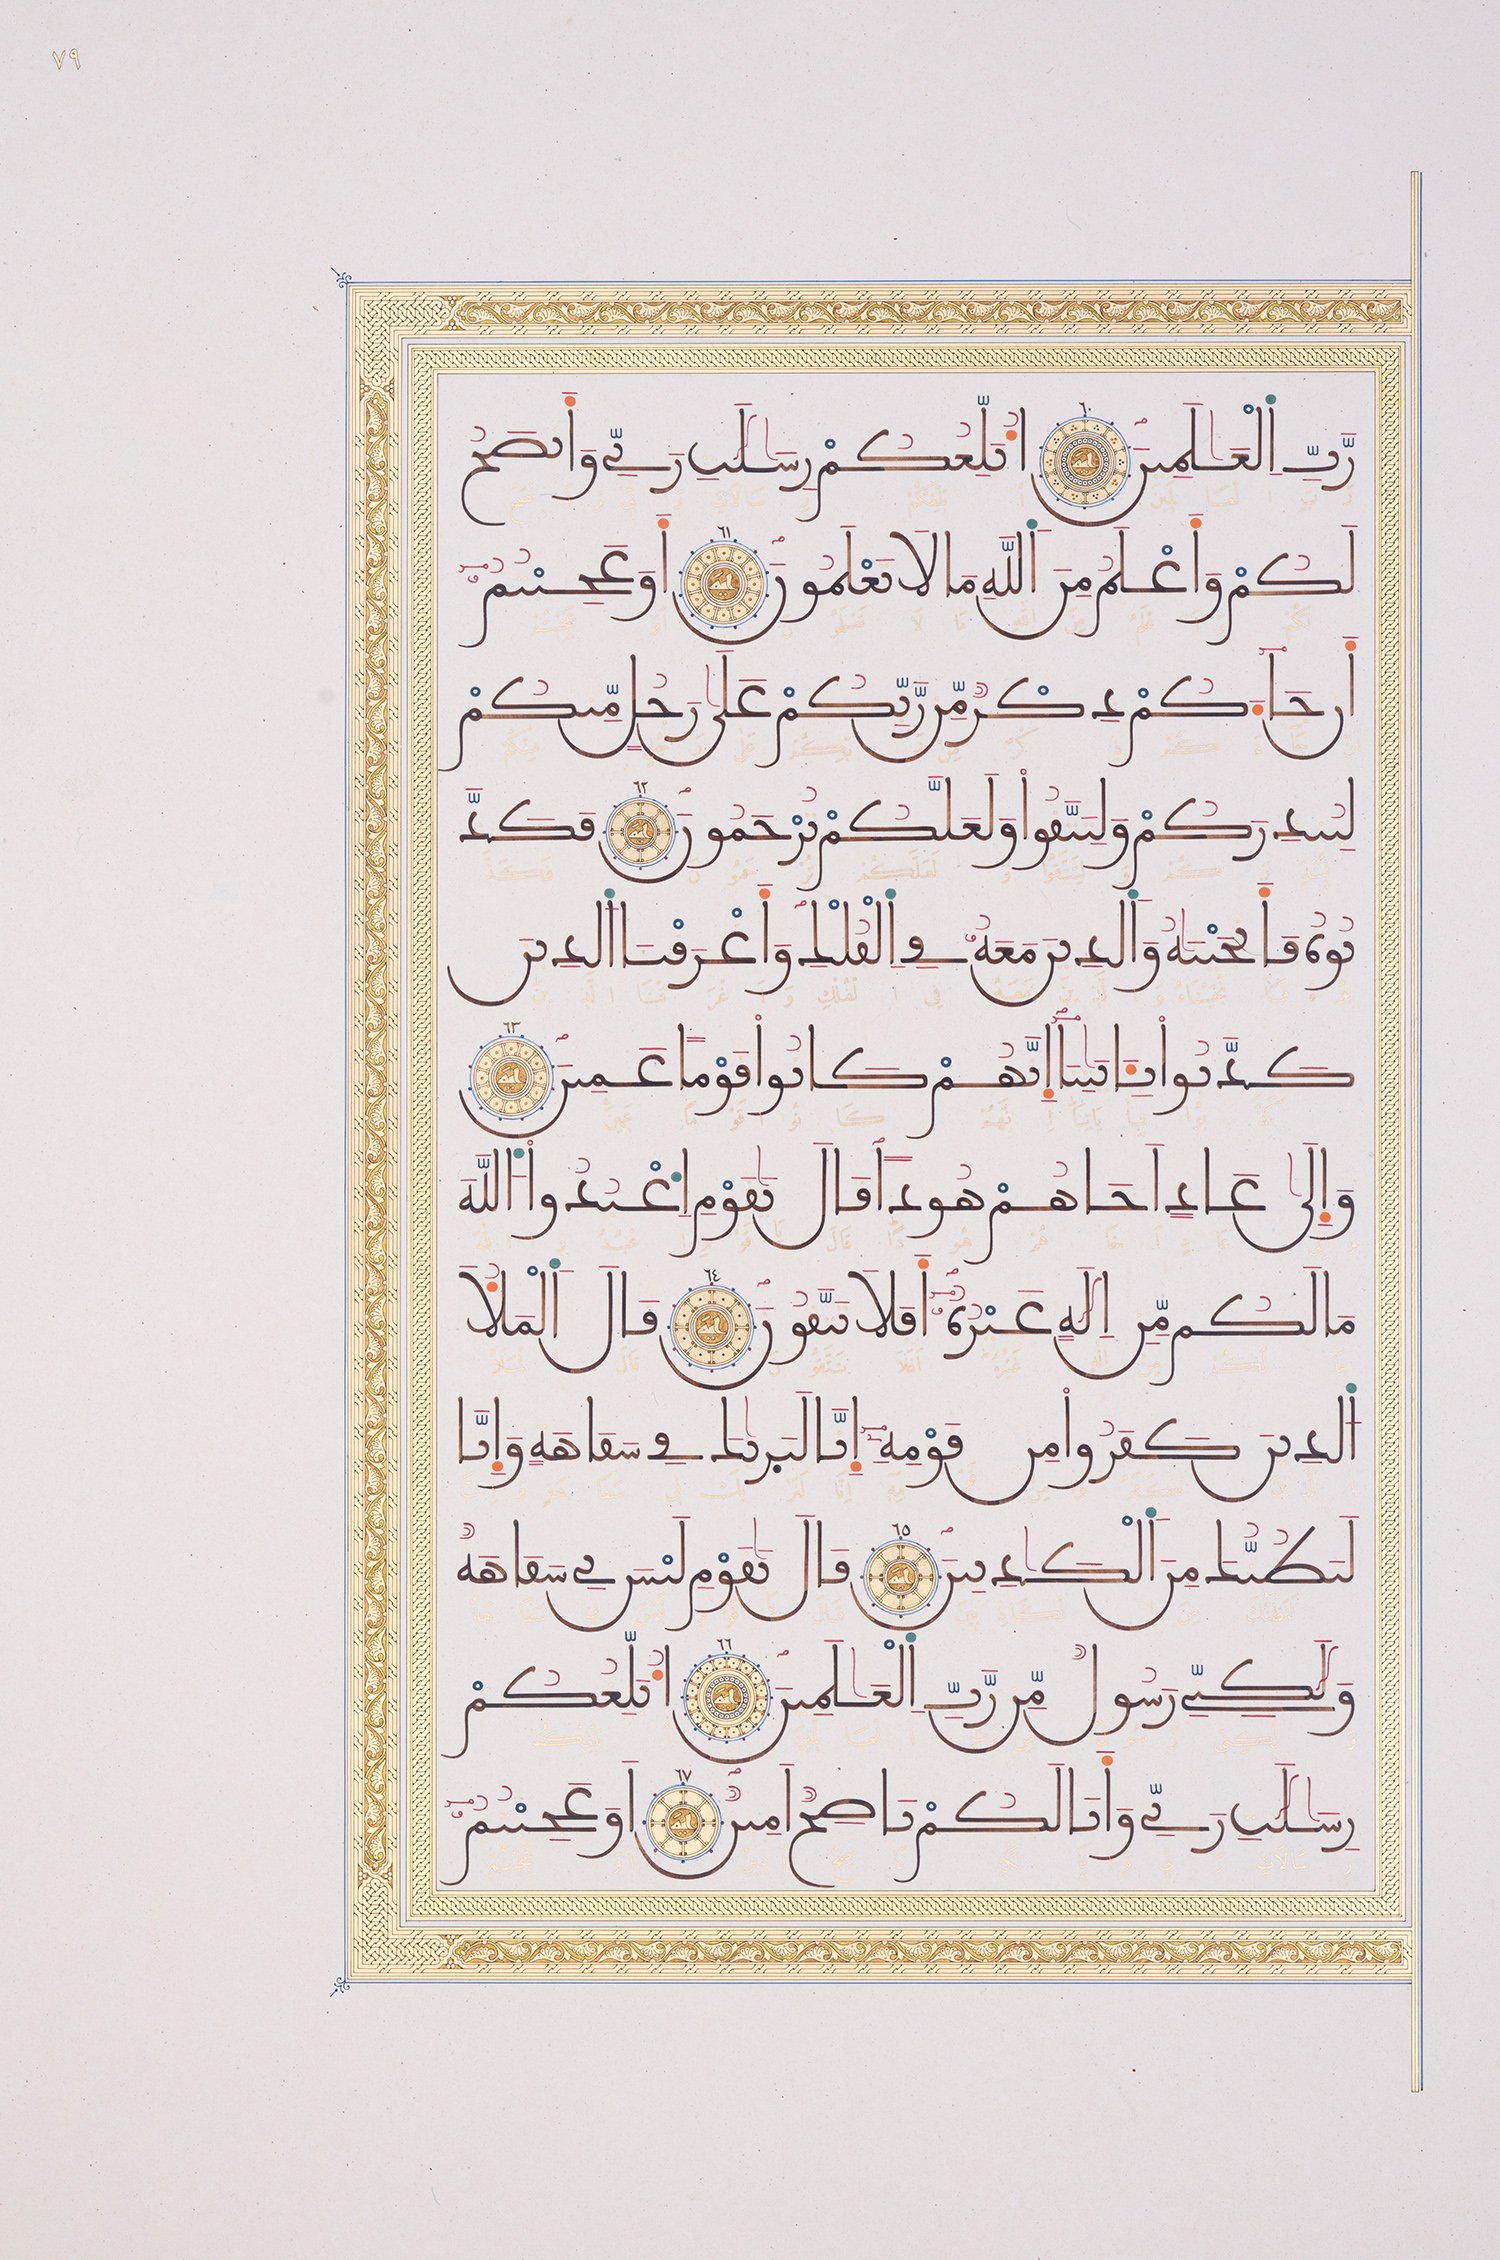 ٧٩
رَّبِّ اِلْعَٰلَمِينَ ٦٠ أُبَلِّغُكُمْ رِسَٰلَٰتِ رَبِّے وَأَنصَحُ
لَكُمْ وَأَعْلَمُ مِنَ اَللَّهِ مَا لَا تَعْلَمُونَ ٦١ أَوَعَجِبْتُمُۥٓ
أَن جَآءَكُمْ ذِكْرٌ مِّن رَّبِّكُمْ عَلَىٰ رَجُلٍ مِّنكُمْ
لِيُنذِرَكُمْ وَلِتَتَّقُواْ وَلَعَلَّكُمْ تُرْحَمُونَ ٦٢ فَكَذَّ
بُوهُ فَأَنجَيْنَٰهُ وَالَذِينَ مَعَهُۥ فِے اِلْفُلْكِ وَأَغْرَقْنَا اَلذِينَ
كَذَّبُواْ بِـَٔايَٰتِنَآ إِنَّهُمْ كَانُواْ قَوْماً عَمِينَ ٦٣
وَإِلَىٰ عَادٍ اَخَاهُمْ هُوداٗ قَالَ يَٰقَوْمِ اِعْبُدُواْ اَللَّهَ
مَا لَكُم مِّنِ اِلَٰهٍ غَيْرُهُۥٓ أَفَلَا تَتَّقُونَ ٦٤ قَالَ اَلْمَلَأُ
اَلذِينَ كَفَرُواْ مِن قَوْمِهِۦٓ إِنَّا لَنَرَىٰكَ فِے سَفَاهَةٍ وَإِنَّا
لَنَظُنُّكَ مِنَ اَلْكَٰذِبِينَ ٦٥ قَالَ يَٰقَوْمِ لَيْسَ بِے سَفَاهَةٌ
وَلَٰكِنِّے رَسُولٌ مِّن رَّبِّ اِلْعَٰلَمِينَ ٦٦ أُبَلِّغُكُمْ
رِسَٰلَٰتِ رَبِّے وَأَنَا لَكُمْ نَاصِحٌ اَمِينٌ ٦٧ اَوَعَجِبْتُمُۥٓ